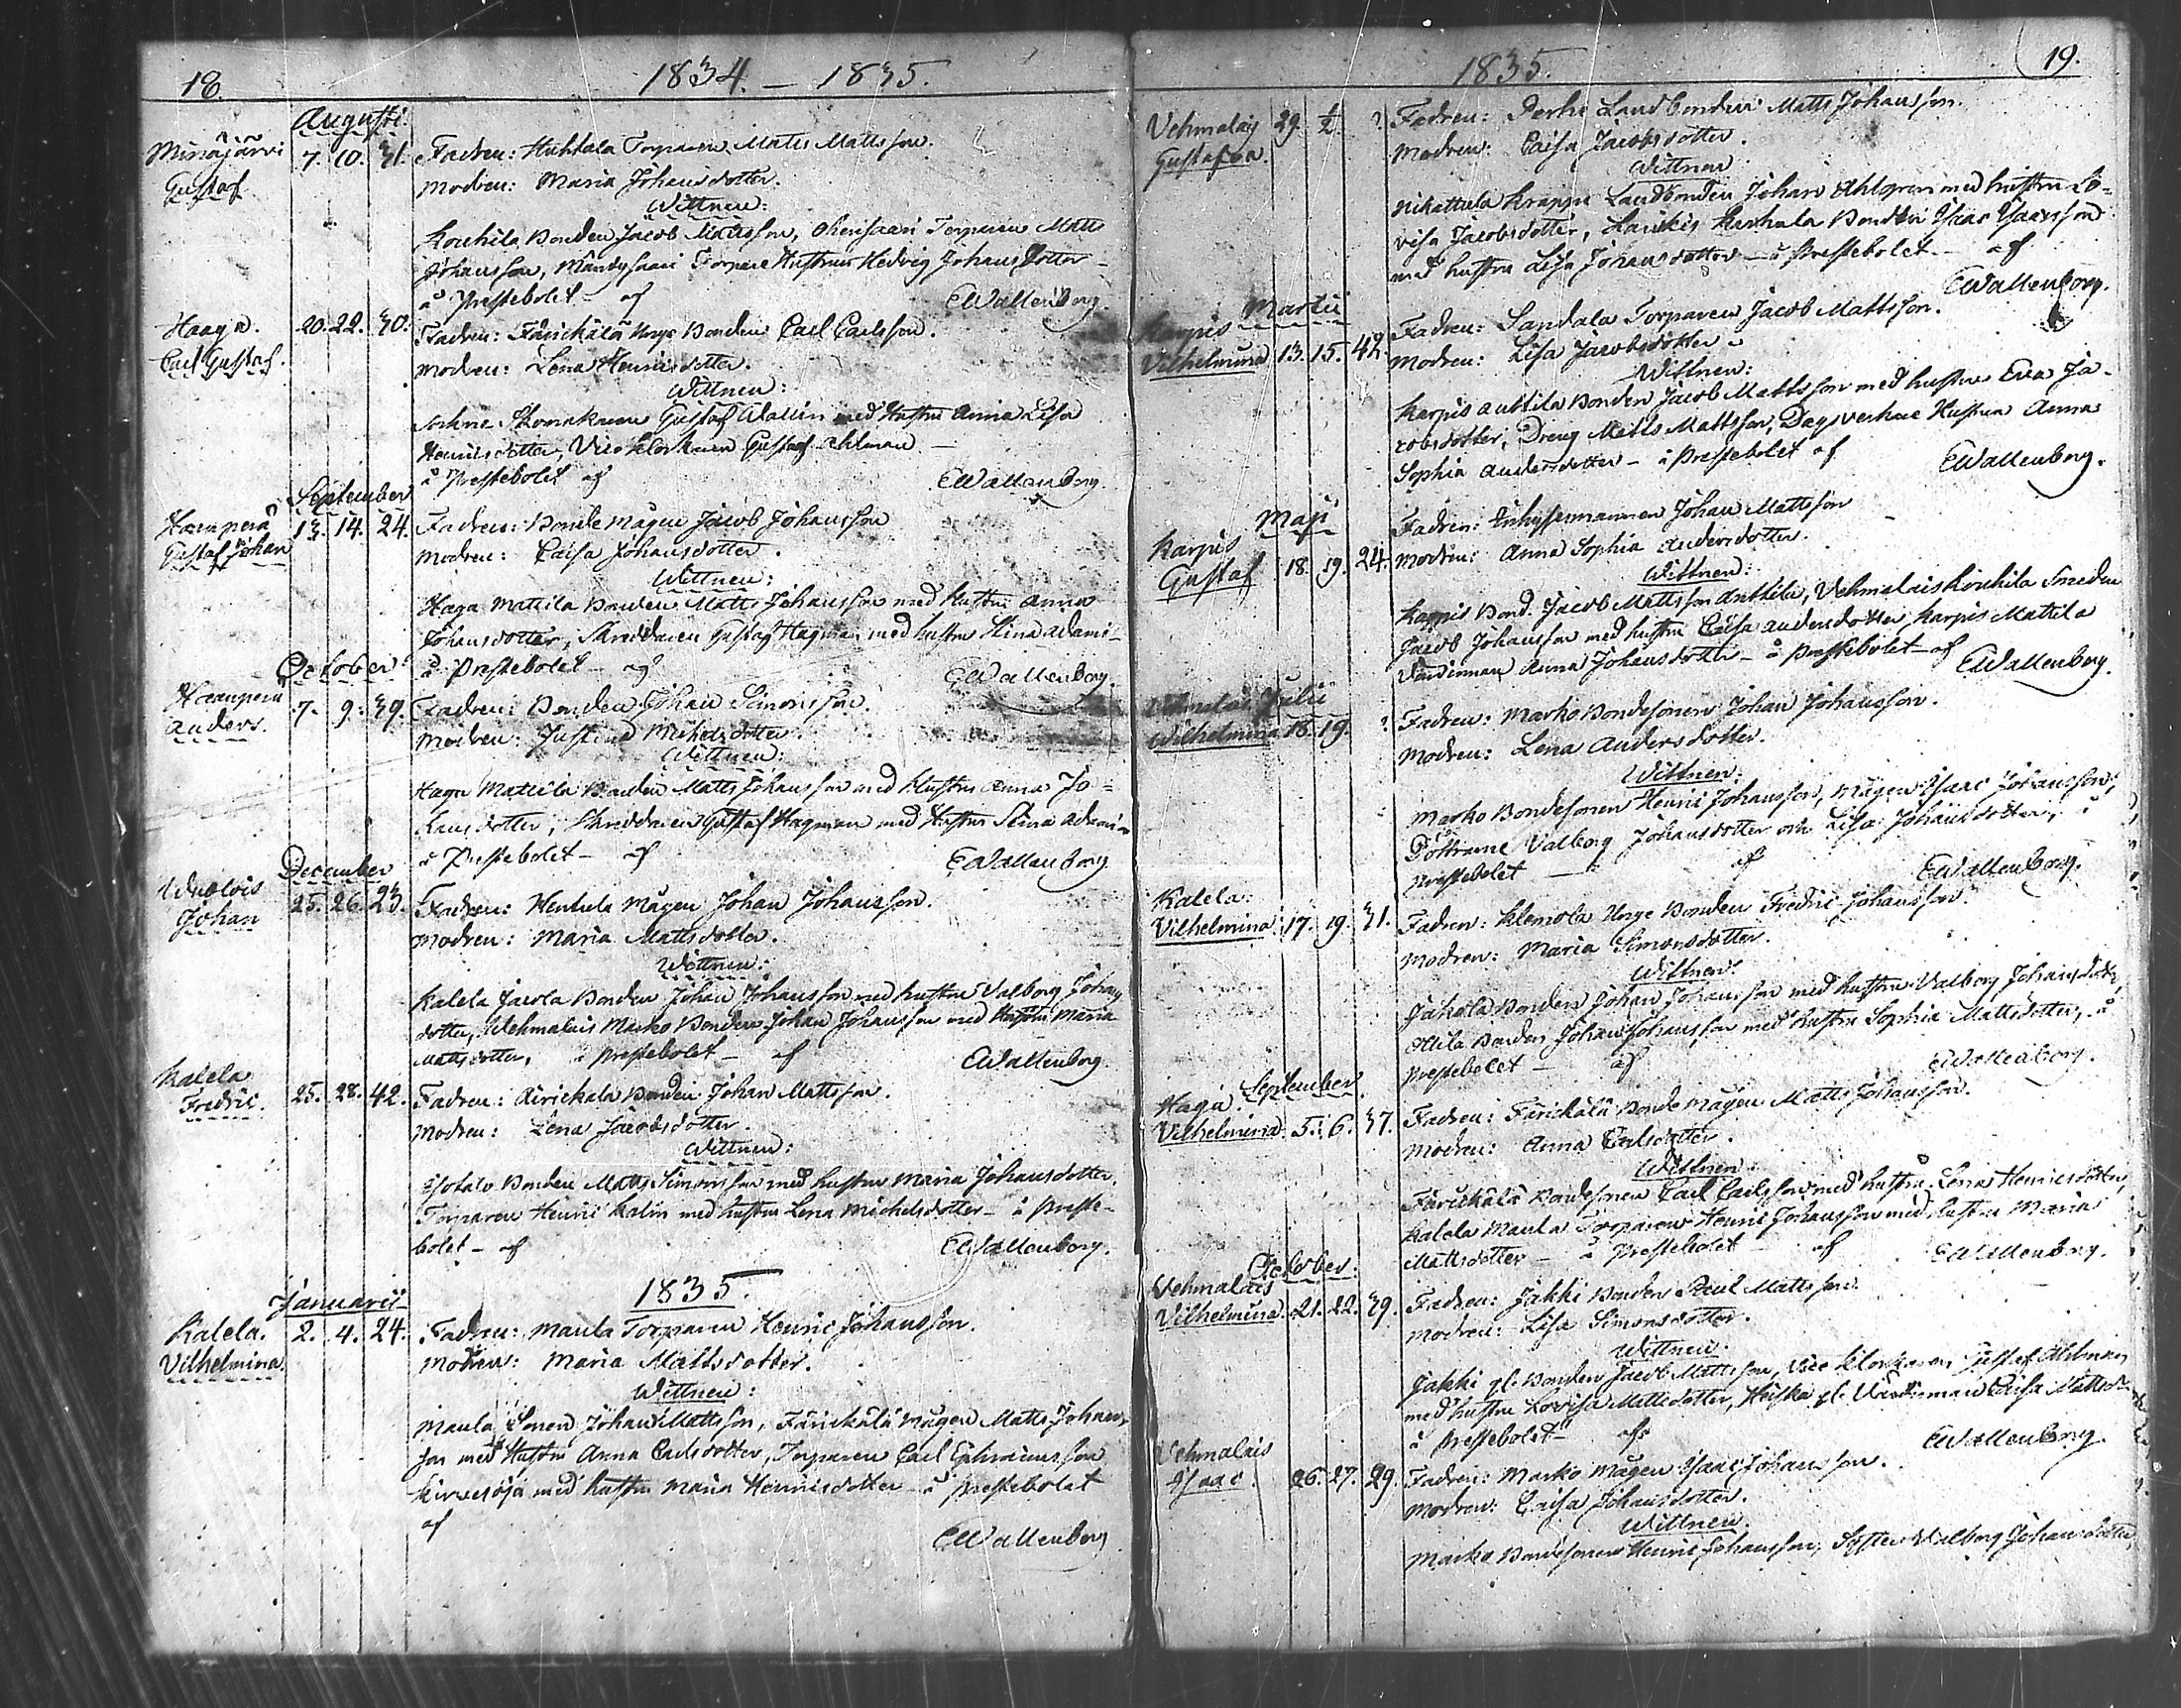 18. 1834. – 1835.
Augusti.
Minäjärvi 7. 10. 31. Fadren: Huhtala Torparen Matts Mattsson.
Gustaf Modren: Maria Johansdotter.
Wittnen:
Kouhila Bonden Jacob Mattsson, Torparen Matts
Johansson, Torpare Hustrun Hedvig Johansdotter –
å Prestebolet – af EWallenborg.
Haaga. 20. 22. 30. Fadren: Färickälä Unge Bonden Carl Carlsson.
Carl Gustaf. Modren: Lena Henricsdotter.
Wittnen:
Sockne Skomakaren Gustaf Wallin med Hustru Anna Lisa
Henricsdotter, Vice Klockaren Gustaf Ahlman –
å Prestebolet af EWallenborg.
September
Haanperä 13. 14. 24. Fadren: Bonde Mågen Jacob Johansson
Gustaf Johan Modren: Caisa Johansdotter.
Wittnen:
Haga Mattila Bonden Matts Johansson med Hustru Anna
Johansdotter, Skreddaren Gustaf Hagman med hustru Stina Adami–
å Prestebolet – af EWallenborg.
October
Haanperä 7. 9. 39. Fadren: Bonden Johan Simonsson.
Anders. Modren: Justina Michelsdotter.
Wittnen:
Haga Mattila Bonden Matts Johansson med Hustru Anna Jo=
hansdotter, Skreddaren Gustaf Hagman med Hustru Stina Adami=
å Prestebolet – af EWallenborg
December
25. 26. 23. Fadren: Mågen Johan Johansson.
Johan Modren: Maria Mattsdotter.
Wittnen:
Kalela Jacola Bonden Johan Johansson med hustru Valborg Johans
dotter, Wehmalais Marko Bonden Johan Johansson med Hustru Maria
Mattsdotter, å prestebolet – af EWallenborg
Kalela 25. 28. 42. Fadren: Äirickala Bonden Johan Mattsson.
Fredric. Modren: Lena Jacobsdotter.
Wittnen:
Isotalo Bonden Matts Simonsson med hustru Maria Johansdotter,
Torparen Henric Kalin med hustru Lena Michelsdotter – å Preste-
bolet – af EWallenborg.
1835.
Januarii
Kalela. 2. 4. 24. Fadren: Maula Torparen Henric Johansson.
Vilhelmina. Modren: Maria Mattsdotter.
Wittnen:
Maula Sonen Johan Mattsson, Färickälä Mågen Matts Johans-
son med Hustru Anna Carlsdotter, Torparen Carl Ephraimsson
med hustru Maria Henricsdotter – å prestebolet
af
EWallenborg
1835. 19.
Vehmalais 29. 1/2. ? Fadren: Perho Landbonden Matts Johansson.
Gustafva. Modren: Caisa Jacobsdotter.
Wittnen
Nikattula Krappi Landbonden Johan Ahlgren med hustru Lo-
visa Jacobsdotter, Laukis Karhula Bonden Isaac Isaacsson
med hustru Lisa Johansdotter – å Prestebolet – af
EWallenborg.
Martii
Karpis Fadren: Sandala Torparen Jacob Mattsson.
Vilhelmina 13. 15. 42. Modren: Lisa Jacobsdotter
Wittnen:
Karpis Anttila Bonden Jacob Mattsson med hustru Eva Ja-
cobsdotter, Dreng Matts Mattsson, Dagsverkare Hustrun Anna
Sophia Andersdotter – å Prestebolet af EWallenborg.
Maji
Karpis Fadren: Inhysesmannen Johan Mattsson
Gustaf 18. 19. 24. Modren: Anna Sophia Andersdotter.
Wittnen:
Karpis Bond. Jacob Mattsson Anttila, Vehmalais Kouhila Smeden
Jacob Johansson med hustru Caisa Andersdotter, Karpis Mattila
Värdinnan Anna Johansdotter – å Prestebolet – af EWallenborg.
Vehmalais Julii Fadren: Marko Bondesonen Johan Johansson.
Wilhelmina 18. 19. ? Modren: Lena Andersdotter.
Wittnen:
Marko Bondesonen Henric Johansson, Mågen Isaac Johansson,
Döttrarne Valborg Johansdotter och Lisa Johansdotter, å
prestebolet – af EWallenborg.
Kalela:
Vilhelmina 17. 19. 31. Fadren: Klemola Unge Bonden Fredric Johansson.
Modren: Maria Simonsdotter.
Wittnen:
Jakola Bonden Johan Johansson med hustru Valborg Johansdotter,
Ollila Bonden Johan Johansson med hustru Sophia Mattsdotter, å
prestebolet – af EWallenborg.
September.
Haga. Fadren: Färickälä Bonde Mågen Matts Johansson.
Vilhelmina 5. 6. 37. Modren: Anna Carlsdotter.
Wittnen
Färickälä Bondesonen Carl Carlsson med hustru Lena Henricsdotter,
Kalela Maula Torparen Henric Johansson med hustru Maria
Mattsdotter – å prestebolet – af EWallenborg.
October.
Vehmalais Fadren: Jakki Bonden Paul Mattsson.
Vilhelmina 21. 22. 39. Modren: Lisa Simonsdotter.
Wittnen.
Jakki gl. Bonden Jacob Mattsson, Vice Klockaren Gustaf Ahlman
med hustru Lovisa Mattsdotter, Heiska gl. Värdinnan Caisa Mattsd–
å Prestebolet – af EWallenborg.
Vehmalais Fadren: Marko Mågen Isaac Johansson.
Isaac. 26. 27. 29. Modren: Caisa Johansdotter.
Wittnen.
Marko Bondesonen Henric Johansson, Syster Valborg Johansdotter,